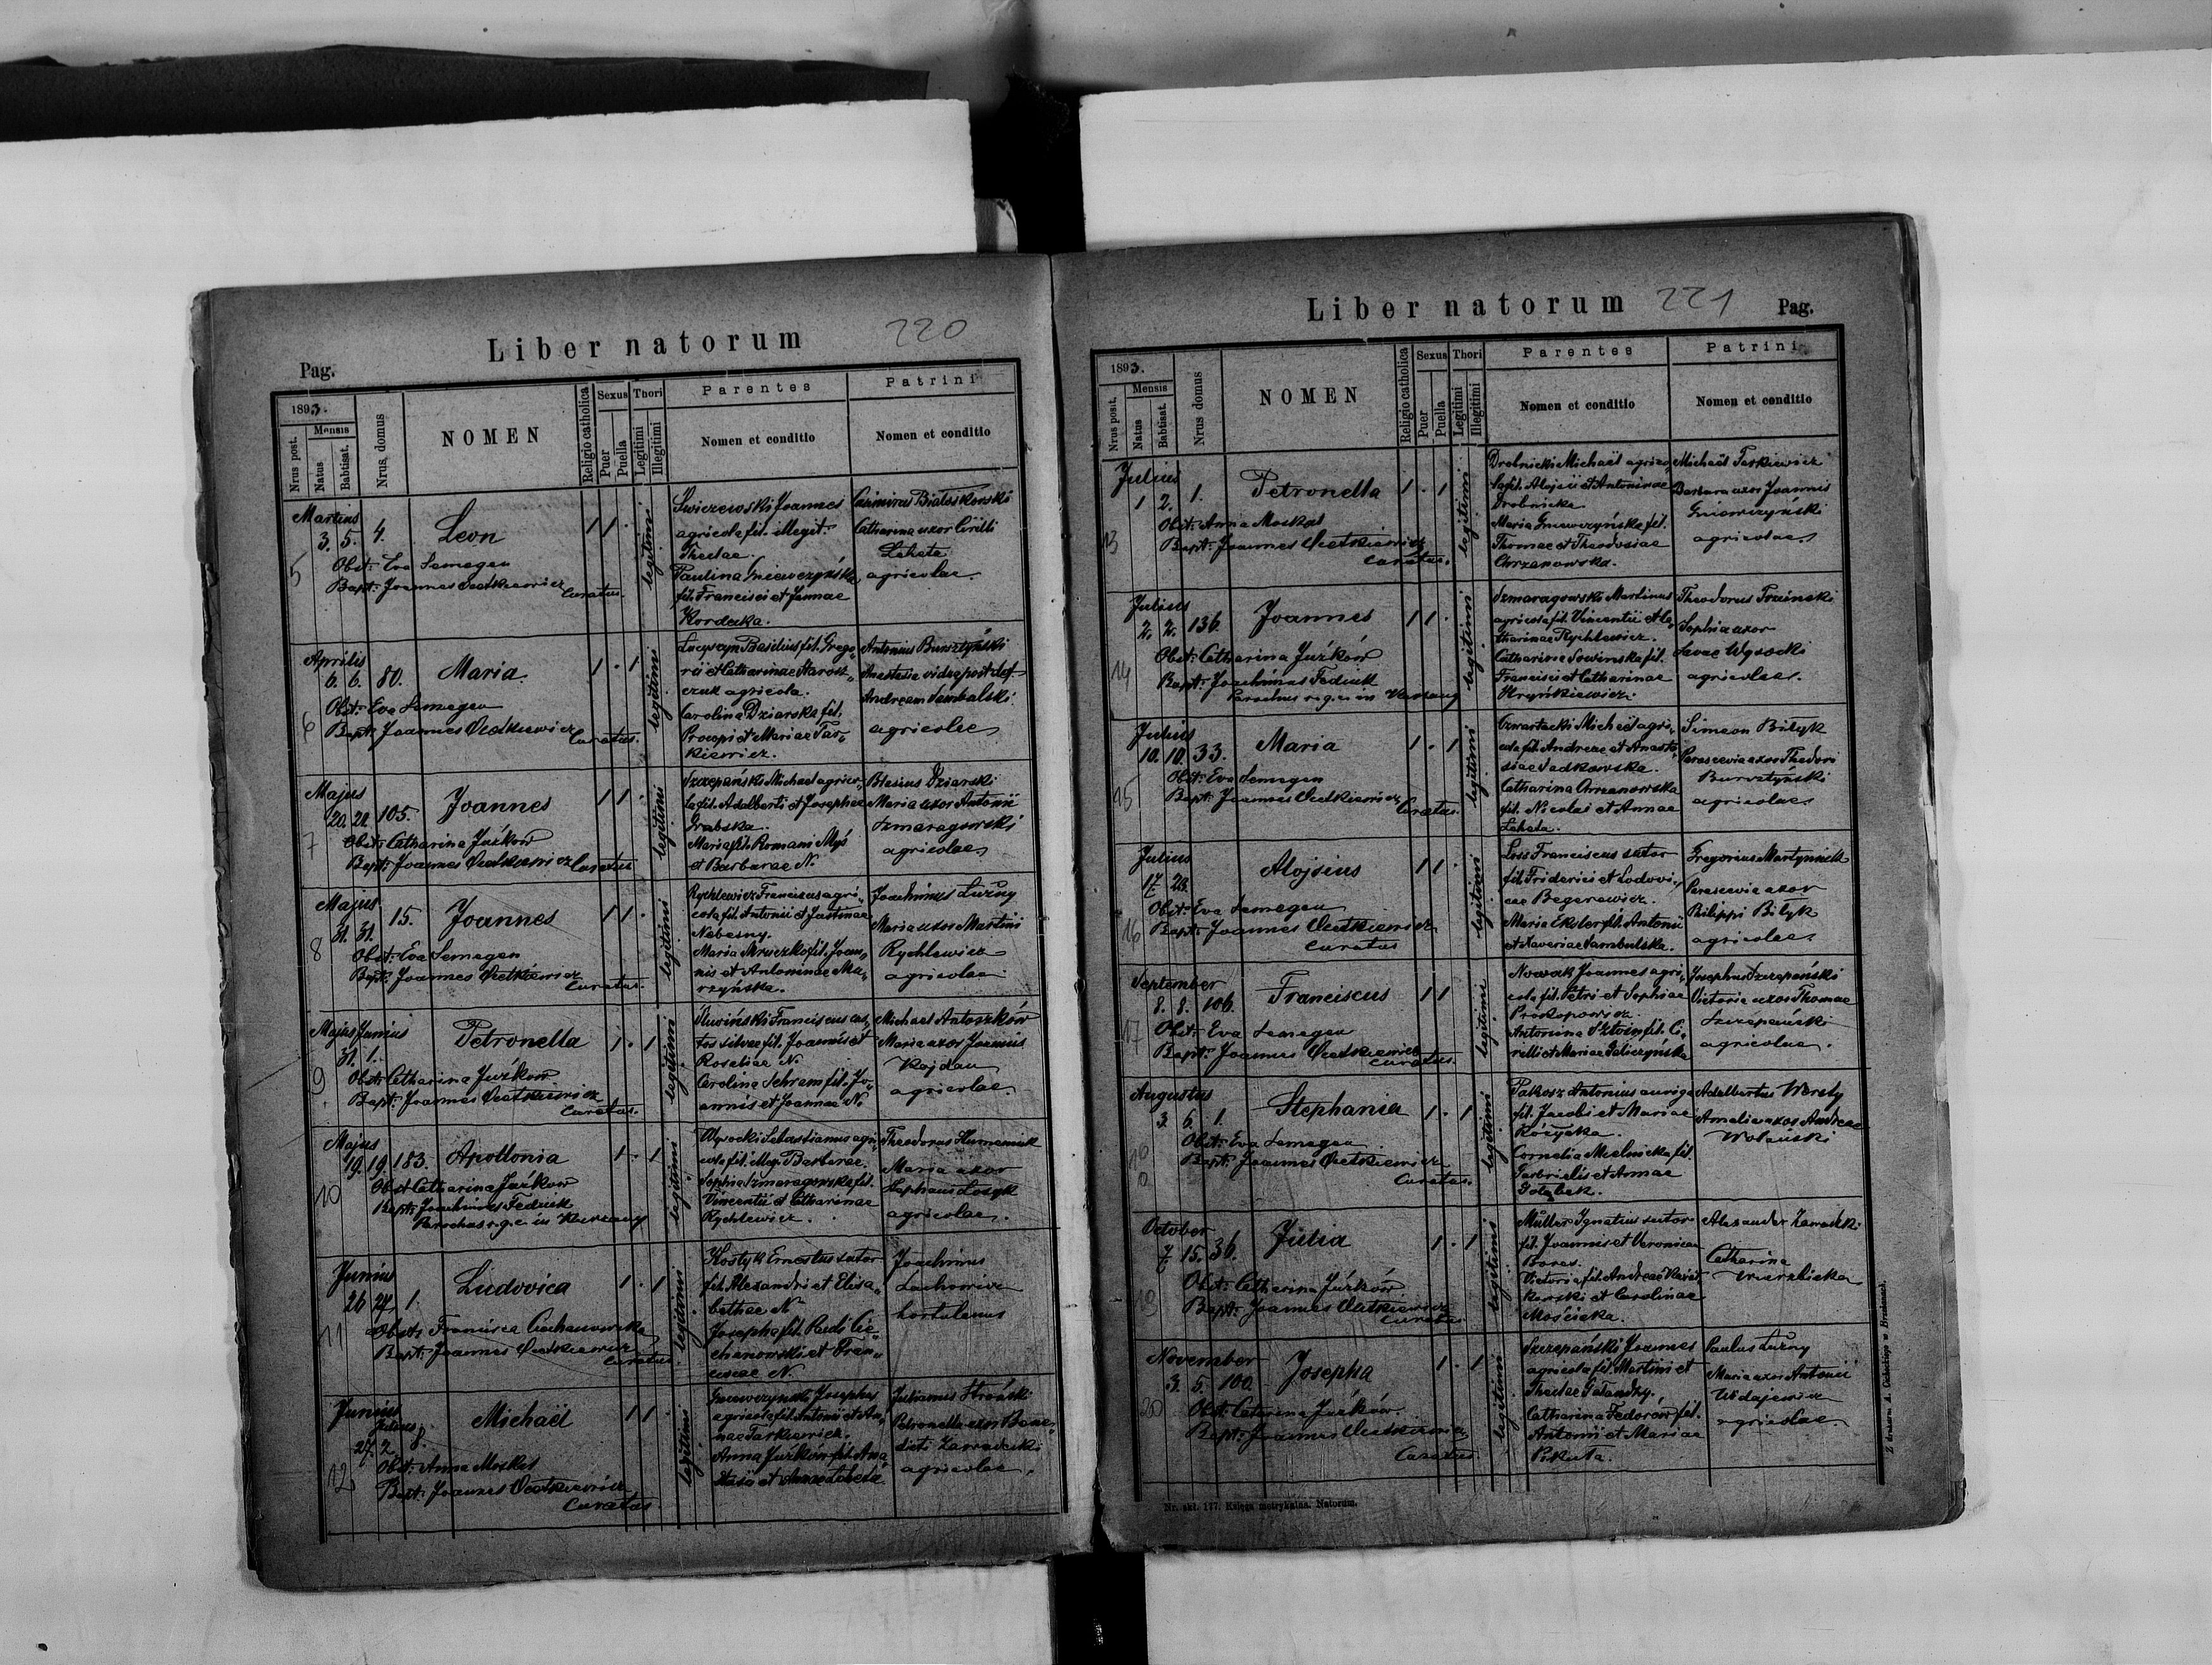 220
Liber natorum
Pag.
1893.
Nrus post.
Mensis
Natus
Babtisat.
Nrus domus
NOMEN
Religio catholica
Sexus
Puer
Puella
Thori
Legitimi
Illegitimi
Parentes
Nomen et conditio
Patrini
Nomen et conditio
Martius
3. 5. 4. Leon 1 1 .
Obst: Eva Semegen
5
Bapt: Joannes Dectkiewicz
Curatus.
legitimi
Swiczewski Joannes
agricola fil. illegit.
Theclae.
Paulina Gniewczyńska
fil. Francisci et Joannae
Kordecka.
Casimirus Białoskorski
Catharina uxor Cirilli
Leheta
agricolae.
Aprilis
6. 6. 80. Maria 1 . 1
Obst: Eva Semegen
6
Bapt: Joannes Dectkiewicz
Curatus.
legitimi
Basilius fil. Grego-
rii et Catharinae
agricola.
Carolina Dziarska fil.
Procopi et Mariae Tar-
kiewicz.
Antonius Bursztyński
Anastasia vidua post def.
Andream Sambalski
agricolae
Majus
20. 22. 105. Joannes 1 1 .
Obst: Catharina Jurków
7
Bapt: Joannes Dectkiewicz Curatus
legitimi
Szczepański Michael agrico-
la fil. Adalberti et Josephae
Grabska.
Maria fil. Romani Myś
et Barbarae N.
Blasius Dziarski
Maria uxor Antonii
Szmaragowski
agricolae
Majus
31. 31. 15. Joannes 1 1 .
Obst: Eva Semegen
8
Bapt: Joannes Dectkiewicz
Curatus.
legitimi
Rychlewicz Franciscus agri-
cola fil. Antonii et Justinae
Nebesny.
Maria Mruczko fil. Joan-
nis et Antoninae
Joachimus Luzny
Maria uxor Martini
Rychlewicz
agricolae
Majus Junius
31. 1. Petronella 1 . 1
Obst: Catharina Jurków
9
Bapt: Joannes Dectkiewicz
Curatus.
legitimi
Śluwiński Franciscus cus-
tos silvae fil. Joannis et
Rosaliae N.
Carolina Schram fil. Jo-
annis et Joannae N.
Michael Antoszków
Maria uxor Joannis
Kajdan
agricolae
Majus
19. 19. 183. Apollonia 1 . 1
Obst: Catharina Jurków
10
Bapt: Joachimus Fediuk
Parochus r. g. c. in Kurzany
legitimi
Wysocki Sebastianus agri-
cola fil. illeg. Barbarae.
Sophia Szmaragowska fil.
Vincentii et Catharinae
Rychlewicz.
Theodorus Humeniuk
Maria uxor
Stephani Łosyk
agricolae.
Junius
26 27. 1. Ludovica 1 . 1
Obst: Francisca Ciechanowska
11
Bapt: Joannes Dectkiewicz
Curatus.
legitimi
Kostyk Ernestus sutor
fil. Alexandri et Elisa-
bethae N.
Josepha fil. Pauli Cie-
chanowski et Fran-
ciscae N.
Joachimus
Lachowicz
hortulanus
Junius
Julius
27. 2. 8. Michaël 1 1
Obst: Anna Moskal
12
Bapt: Joannes Dectkiewicz
Curatus.
legitimi
Gniewczyński Josephus
agricola fil. Antonii et An-
nae Tarkiewicz.
Anna Jurków fil. Ana-
stasii et
Julianus Stroński
Petronella uxor Bene-
dicti Zawadzki
agricolae.
Liber natorum 221 Pag.
1893.
Nrus posit.
Mensis
Natus
Babtisat.
Nrus domus
NOMEN
Religio catholica
Sexus
Puer
Puella
Thori
Legitimi
Illegitimi
Parentes
Nomen et conditio
Patrini
Nomen et conditio
Julius
1 2. 1. Petronella 1 . 1
Obst: Anna Moskal
13
Bapt: Joannes Dectkiewicz
Curatus.
legitimi
Drobnicki Michaël agrico-
la fil. Alojsii et Antoninae
Drobnicka
Maria Gniewczyńska fil.
Thomae et Theodosiae
Chrzanowska.
Michaël Tarkiewicz
Barbara uxor Joannis
Gniewczyński
agricolae.
Julius
2. 2. 136. Joannes 1 1 .
Obst: Catharina Jurków
14
Bapt: Joachimus Fediuk
Parochus r. g. c. in Kurzany
legitimi
Szmaragowski Martinus
agricola fil. Vincentii et Ca-
tharinae Rychlewicz.
Catharina Sowinska fil.
Francisci et Catharinae
Hryńkiewicz.
Theodorus
Sophia uxor
Savae Wysocki
agricolae.
Julius
10. 10. 33. Maria 1 . 1
Obst: Eva Semegen
15
Bapt: Joannes Dectkiewicz
Curatus.
legitimi
Czwartacki Michaël agri-
cola fil. Andreae et Anasta-
siae Sadkowska.
Catharina Chrzanowska
fil. Nicolai et Annae
Leheta.
Simeon Bilyk
Parascevia uxor Theodori
Bursztyński
agricolae
Julius
17. 23. Alojsius 1 1 .
Obst: Eva Semegen
16
Bapt: Joannes Dectkiewicz
Curatus
legitimi
Loss Franciscus sutor
fil. Friderici et Ludovi-
cae Begerewicz.
Maria Eksler fil. Antonii
et Xaveriae Sambulska.
Gregorius Martyniuk
Parascevia uxor
Philippi Bilyk
agricolae.
September
8. 8. 106. Franciscus 1 1
Obst: Eva Semegen
17
Bapt: Joannes Dectkiewicz
Curatus.
legitimi
Nowak Joannes agri-
cola fil. Petri et Sophiae
Prokopowicz.
Antonina Sztoin fil. Ci-
rilli et Mariae Galiczyńska
Josephus Szczepański
Victoria uxor Thomae
Szczepański
agricolae.
Augustus
3. 6. 1. Stephania 1 . 1
Obst: Eva Semegen
Bapt: Joannes Dectkiewicz
Curatus.
legitimi
Patkosz Antonius auriga
fil. Jacobi et Mariae
Kózycka.
Cornelia Mielnicka fil.
Gabrielis et Annae
Gołąbek.
Adalbertus Wersty
Amalia uxor Andreae
Wolański
October
7. 15. 36. Julia 1 . 1
Obst: Catharina Jurków
19
Bapt: Joannes Dectkiewicz
Curatus.
legitimi
Müller Ignatius sutor
fil. Joannis et Veronicae
Boras.
Victoria fil. Andreae
et Carolinae
Mościska.
Alexander Zawadzki
Catharina
Wierzbicka
November
3. 5. 100. Josepha 1 . 1
Obst: Catarina Jurków
20
Bapt: Joannes Dectkiewicz
Curatus
legitimi
Szczepański Joannes
agricola fil. Martini et
Theclae Gałandzy.
Catharina Fedorów fil.
Antonii et Mariae
Pikuta.
Paulus Luzny
Maria uxor Antonii
Udajewicz
agricolae.
Nr. skł. 177. Księga metrykalna. Natorum.
Z drukarni A. Cichockiego w Brzeżanach.